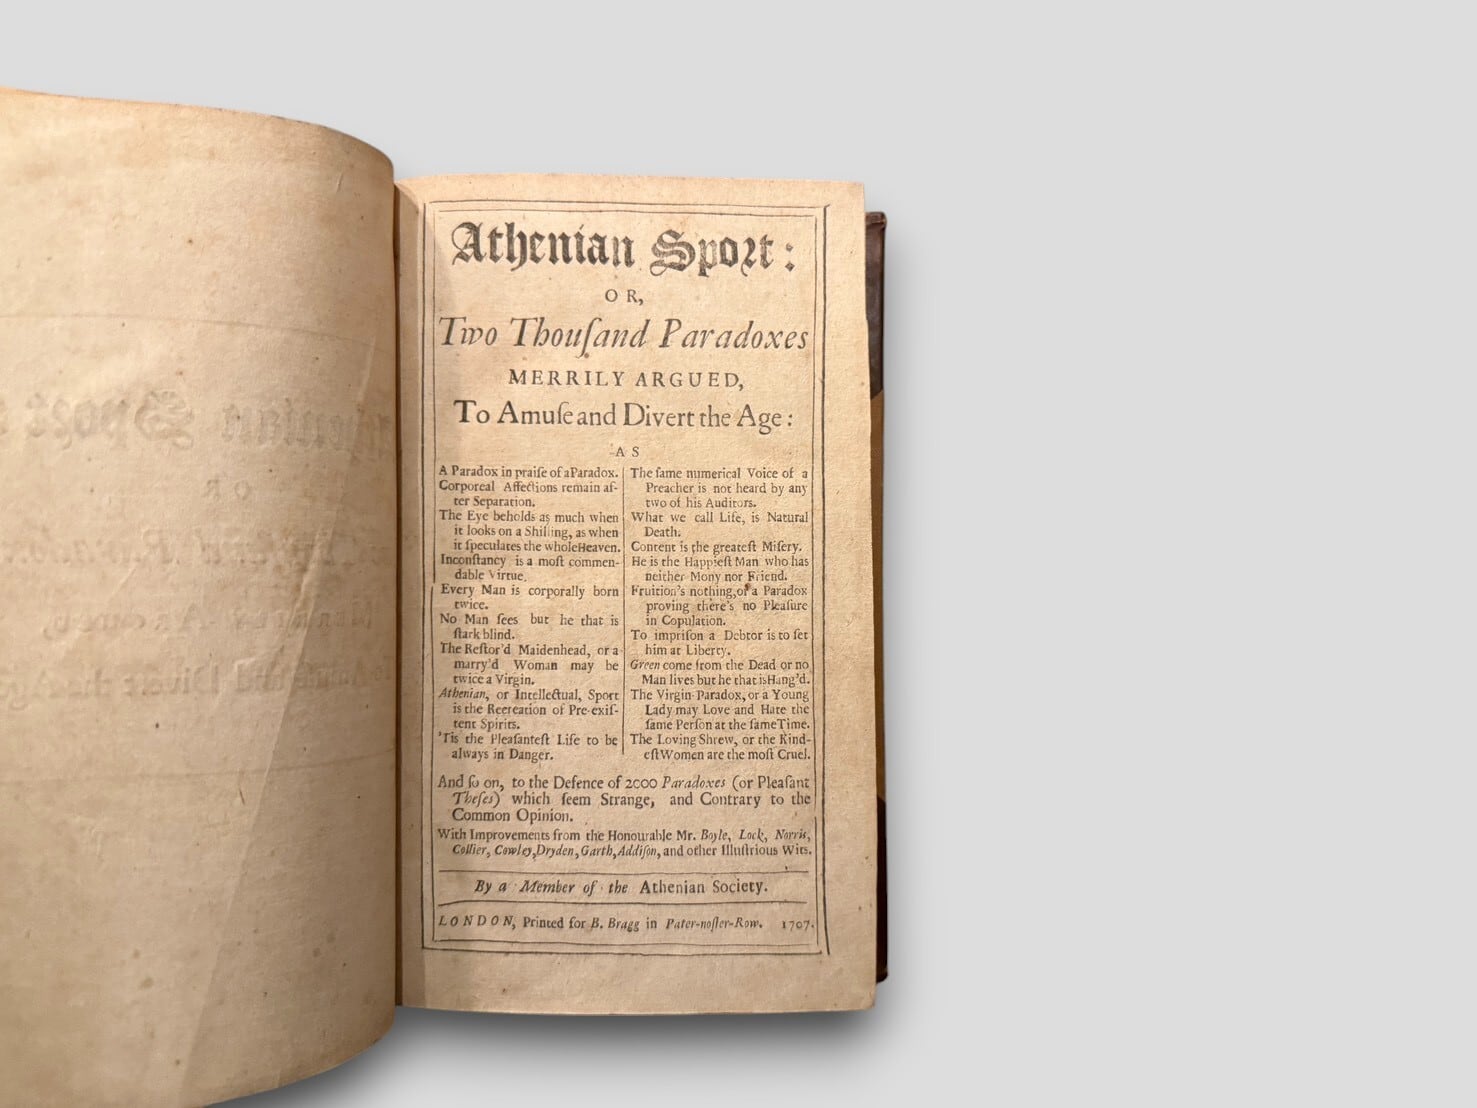 Athenian Sport:
OR,
Two Thouſand Paradoxes
MERRILY ARGUED,
To Amuſe and Divert the Age:
AS
A Paradox in praiſe of a Paradox.
Corporeal Affections remain af-
ter Separation.
The Eye beholds as much when
it looks on a Shilling, as when
it ſpeculates the whole Heaven.
Inconſtancy is a moſt commen-
dable Virtue.
Every Man is corporally born
twice.
No Man ſees but he that is
ſtark blind.
The Reſtor'd Maidenhead, or a
marry'd Woman may be
twice a Virgin.
Athenian, or Intellectual, Sport
is the Recreation of Pre-exiſ-
tent Spirits.
'Tis the Pleaſanteſt Life to be
always in Danger.
The ſame numerical Voice of a
Preacher is not heard by any
two of his Auditors.
What we call Life, is Natural
Death.
Content is the greateſt Miſery.
He is the Happieſt Man who has
neither Mony nor Friend.
Fruition's nothing, or a Paradox
proving there's no Pleaſure
in Copulation.
To impriſon a Debtor is to ſet
him at Liberty.
Green come from the Dead or no
Man lives but he that is Hang'd.
The Virgin-Paradox, or a Young
Lady may Love and Hate the
ſame Perſon at the ſame Time.
The Loving Shrew, or the Kind-
eſt Women are the moſt Cruel.
And ſo on, to the Defence of 2000 Paradoxes (or Pleaſant
Theſes) which ſeem Strange, and Contrary to the
Common Opinion.
With Improvements from the Honourable Mr. Boyle, Lock, Norris,
Collier, Cowley, Dryden, Garth, Addiſon, and other Illuſtrious Wits.
By a Member of the Athenian Society.
LONDON, Printed for B. Bragg in Pater-noſter-Row. 1707.